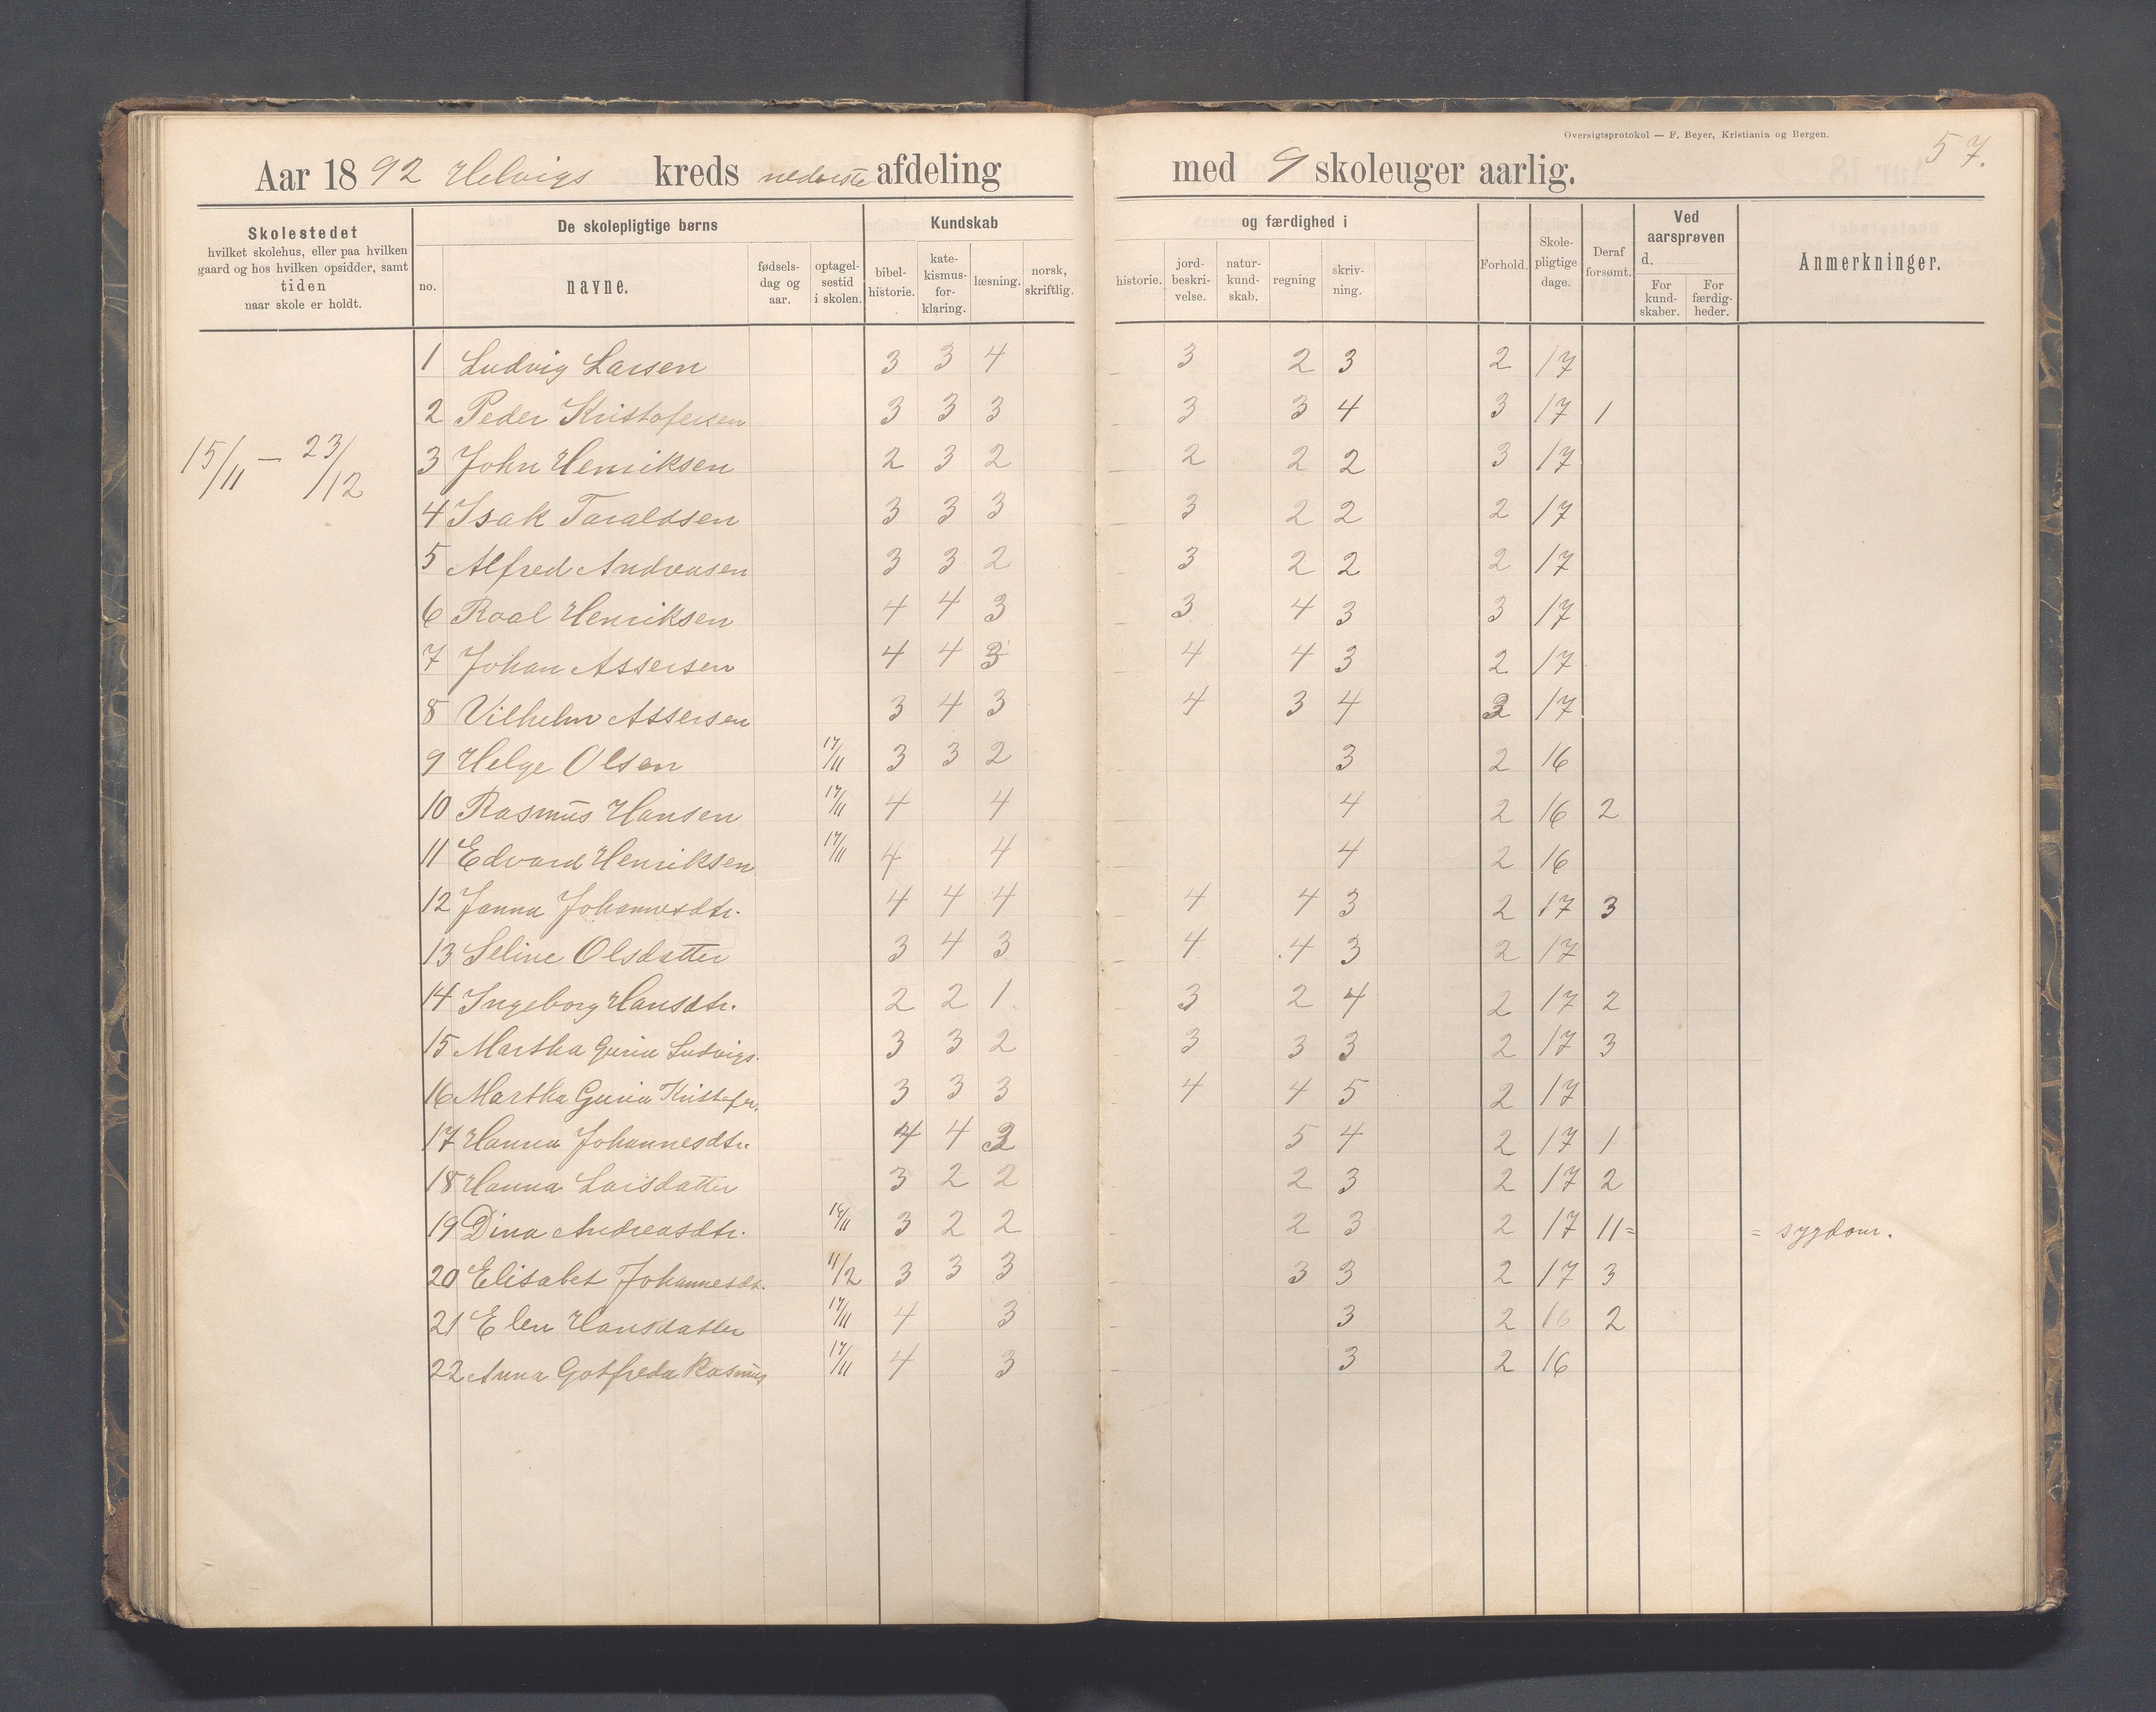 Oversigtsprotokol — F. Beyer, Kristiania og Bergen.
57.
Aar 1892 Helvigs kreds nederste afdeling med 9 skoleuger aarlig.
Skolestedet
hvilket skolehus, eller paa hvilken
gaard og hos hvilken opsidder, samt
tiden
naar skole er holdt.
De skolepligtige børns
no.
navne.
fødsels-
dag og
aar.
optagel-
sestid
i skolen.
Kundskab
bibel-
historie.
kate-
kismus-
for-
klaring.
læsning.
norsk,
skriftlig.
og færdighed i
historie.
jord-
beskri-
velse.
natur-
kund-
skab.
regning
skriv-
ning.
Forhold.
Skole-
pligtige
dage.
Deraf
forsømt.
Ved
aarsprøven
d.
For
kund-
skaber.
For
færdig-
heder.
Anmerkninger.
15/11 — 23/12
1 Ludvig Larsen 3 3 4 3 2 3 2 17
2 Peder Kristofersen 3 3 3 3 3 4 3 17 1
3 John Henriksen 2 3 2 2 2 2 3 17
4 Isak Taraldsen 3 3 3 3 2 2 2 17
5 Alfred Andreasen 3 3 2 3 2 2 2 17
6 Roal Henriksen 4 4 3 3 4 3 3 17
7 Johan Assersen 4 4 3 4 4 3 2 17
8 Vilhelm Assersen 3 4 3 4 3 4 3 17
9 Helge Olsen 17/11 3 3 2 3 2 16
10 Rasmus Hansen 17/11 4 4 4 2 16 2
11 Edvard Henriksen 17/11 4 4 4 2 16
12 Janna Johannesdtr. 4 4 4 4 4 3 2 17 3
13 Seline Olsdatter 3 4 3 4 4 3 2 17
14 Ingeborg Hansdtr. 2 2 1 3 2 4 2 17 2
15 Martha Guria Ludvigs. 3 3 2 3 3 3 2 17 3
16 Martha Guria Kristofer. 3 3 3 4 4 5 2 17
17 Hanna Johannesdtr. 4 4 3 5 4 2 17 1
18 Hanna Larsdatter 3 2 2 2 3 2 17 2
19 Dina Andreasdtr. /11 3 2 2 2 3 2 17 11= = sygdom.
20 Elisabet Johannesdt. 11/2 3 3 3 3 3 2 17 3
21 Elen Hansdatter 17/11 4 3 3 2 16 2
22 Anna Gotfreda Rasmus 17/11 4 3 3 2 16